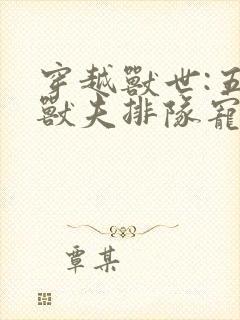 穿越獸世:五
獸夫排隊寵
覃某